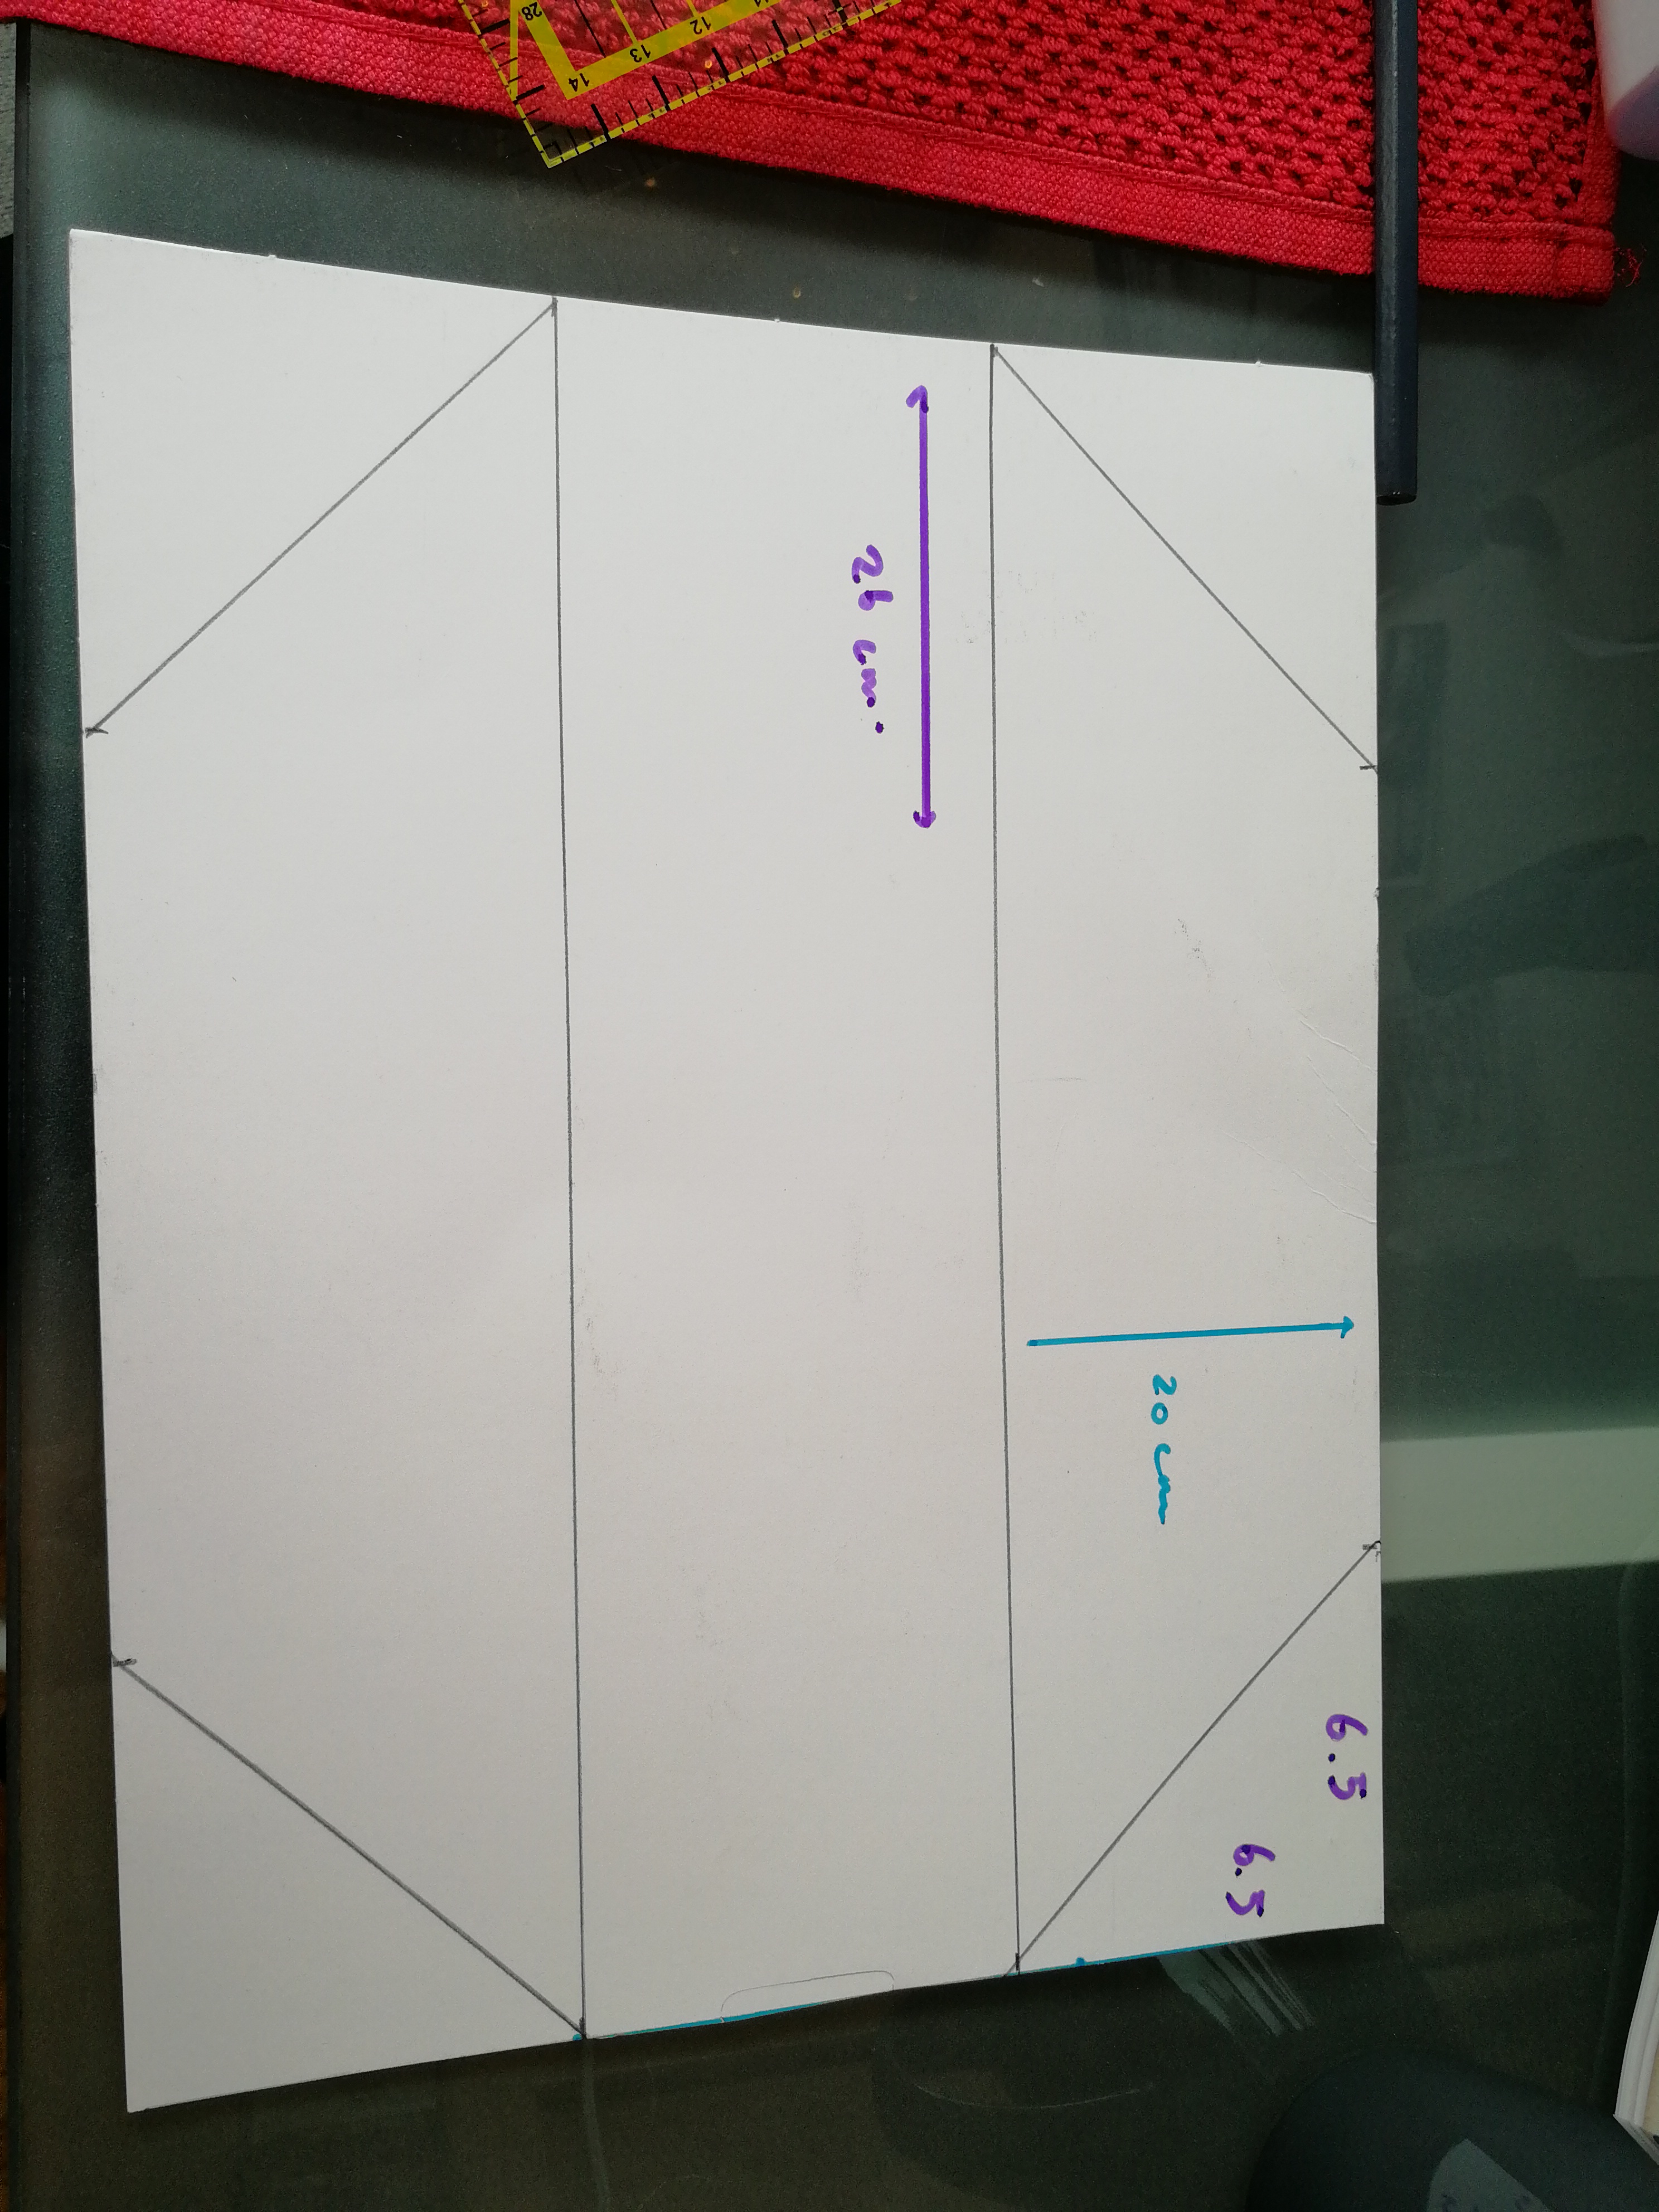 28
14
13
12
11
26 cm.
20 cm
6.5
6.5